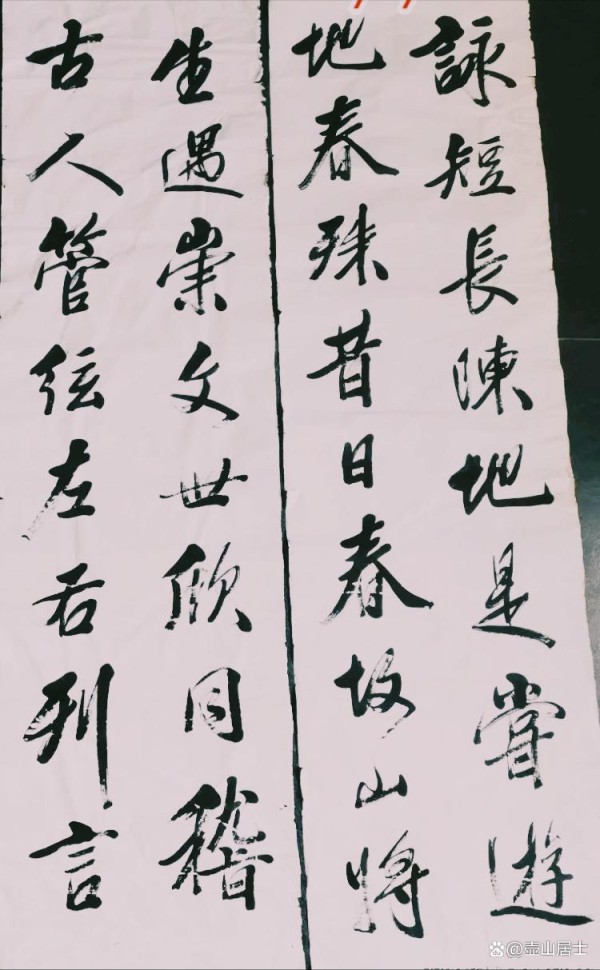 詠短長陳地是嘗遊
地春殊昔日春故山將
生遇崇文世欣同稽
古人管絃左右列言
壶山居士